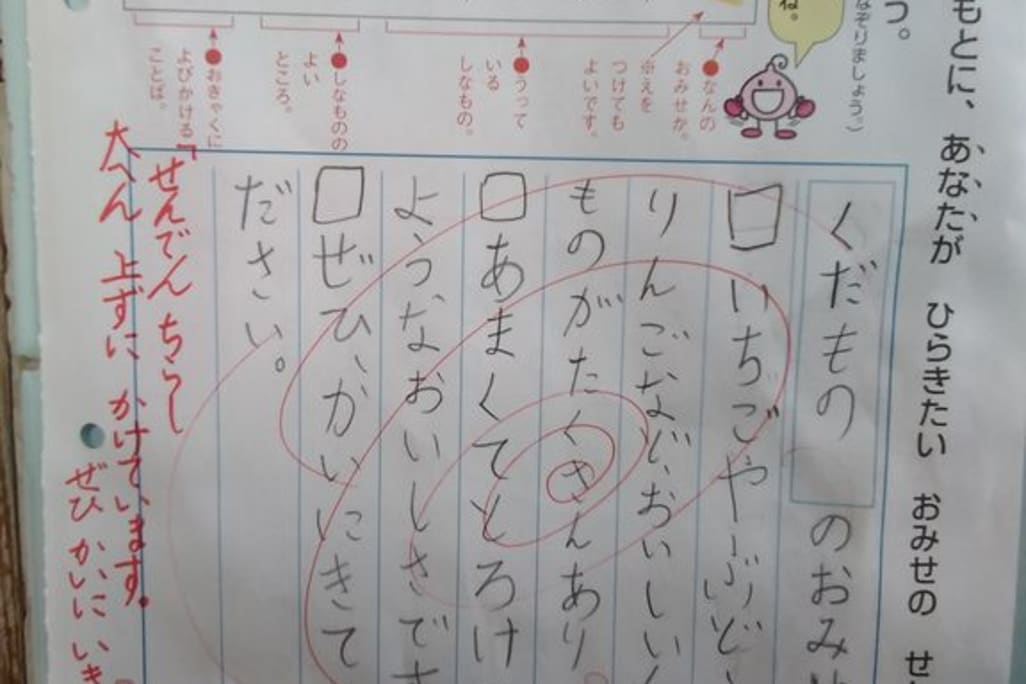 もとに、あなたが ひらきたい おみせの せ
つ。
なぞりましょう。）
ね。
●なんの
おみせか。
※えを
つけても
よいです。
●うって
いる
しなもの。
●しなものの
よい
ところ。
●おきゃくに
よびかける
ことば。
くだもの のおみせ
□いちごやぶどう
りんごなど、おいしいく
ものがたくさんあり
□あまくてとろけ
ようなおいしさです
□ぜひ、かいにきて
ださい。
「せんでん ちらし
大へん 上ずに かけています。
ぜひ かいに いき